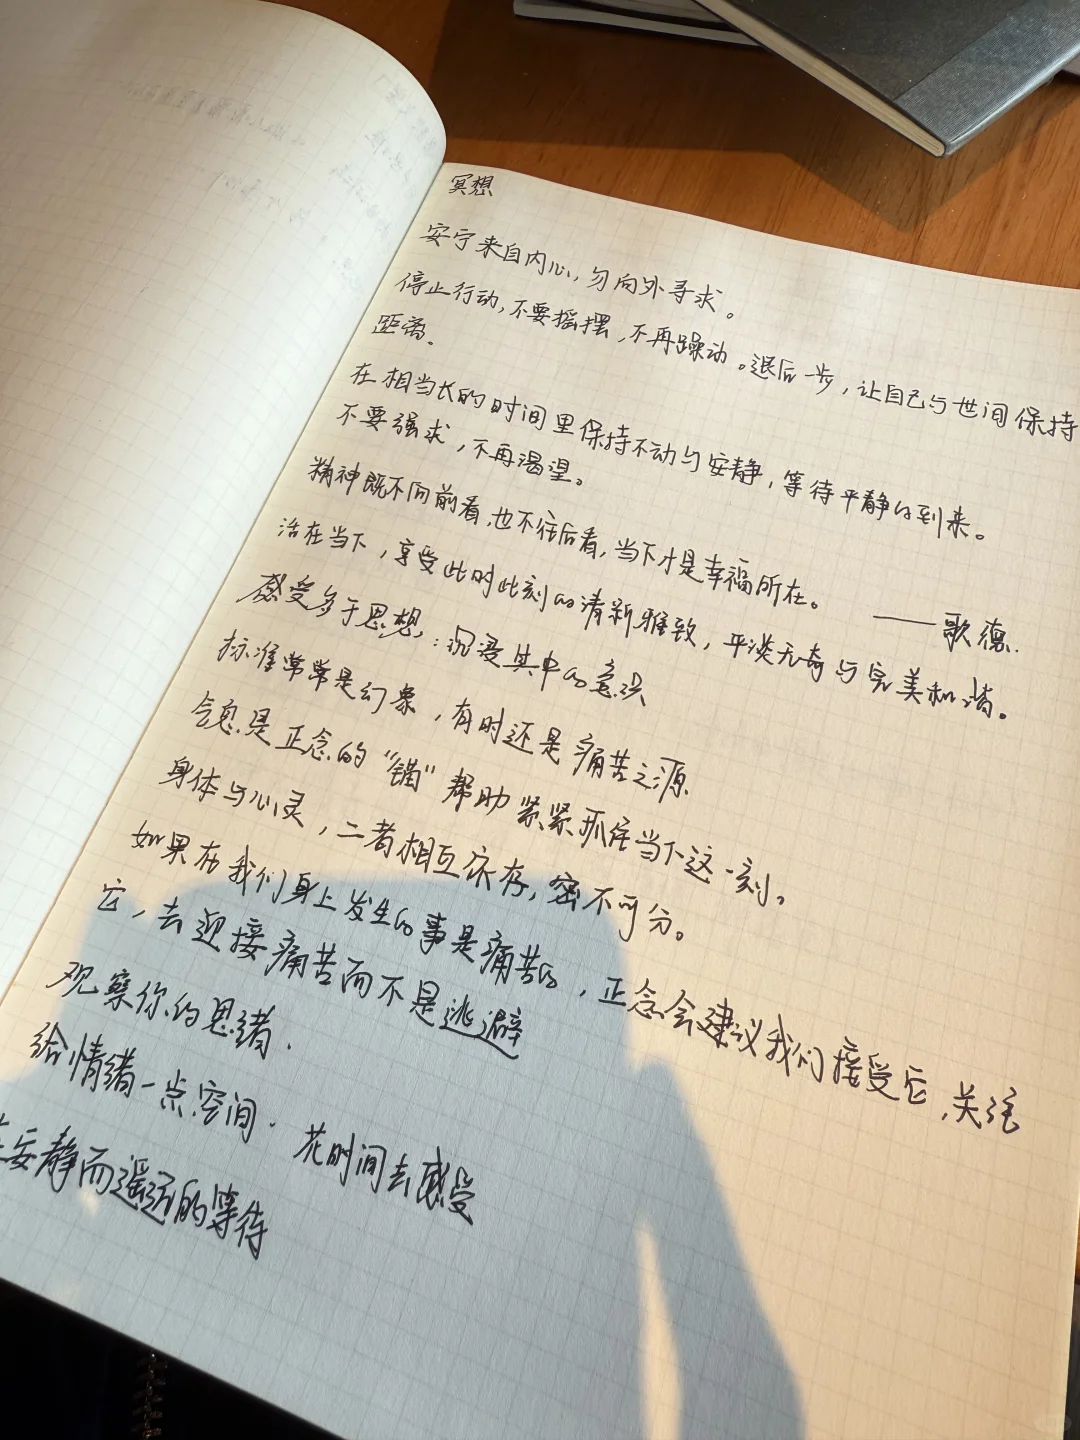 冥想
安宁来自内心，勿向外寻求。
停止行动，不要摇摆，不再躁动。退后一步，让自己与世间保持
距离.
在相当长的时间里保持不动与安静，等待平静的到来。
不要强求，不再渴望。
精神既不向前看，也不往后看，当下才是幸福所在。 ——歌德.
活在当下，享受此时此刻的清新雅致，平淡无奇与完美和谐。
感受多于思想：沉浸其中的意识
标准常常是幻象，有时还是痛苦之源
气息是正念的“锚”帮助紧紧抓住当下这一刻。
身体与心灵，二者相互依存，密不可分。
如果在我们身上发生的事是痛苦的，正念会建议我们接受它，关注
它，去迎接痛苦而不是逃避
观察你的思绪.
给情绪一点空间. 花时间去感受
安静而遥远的等待